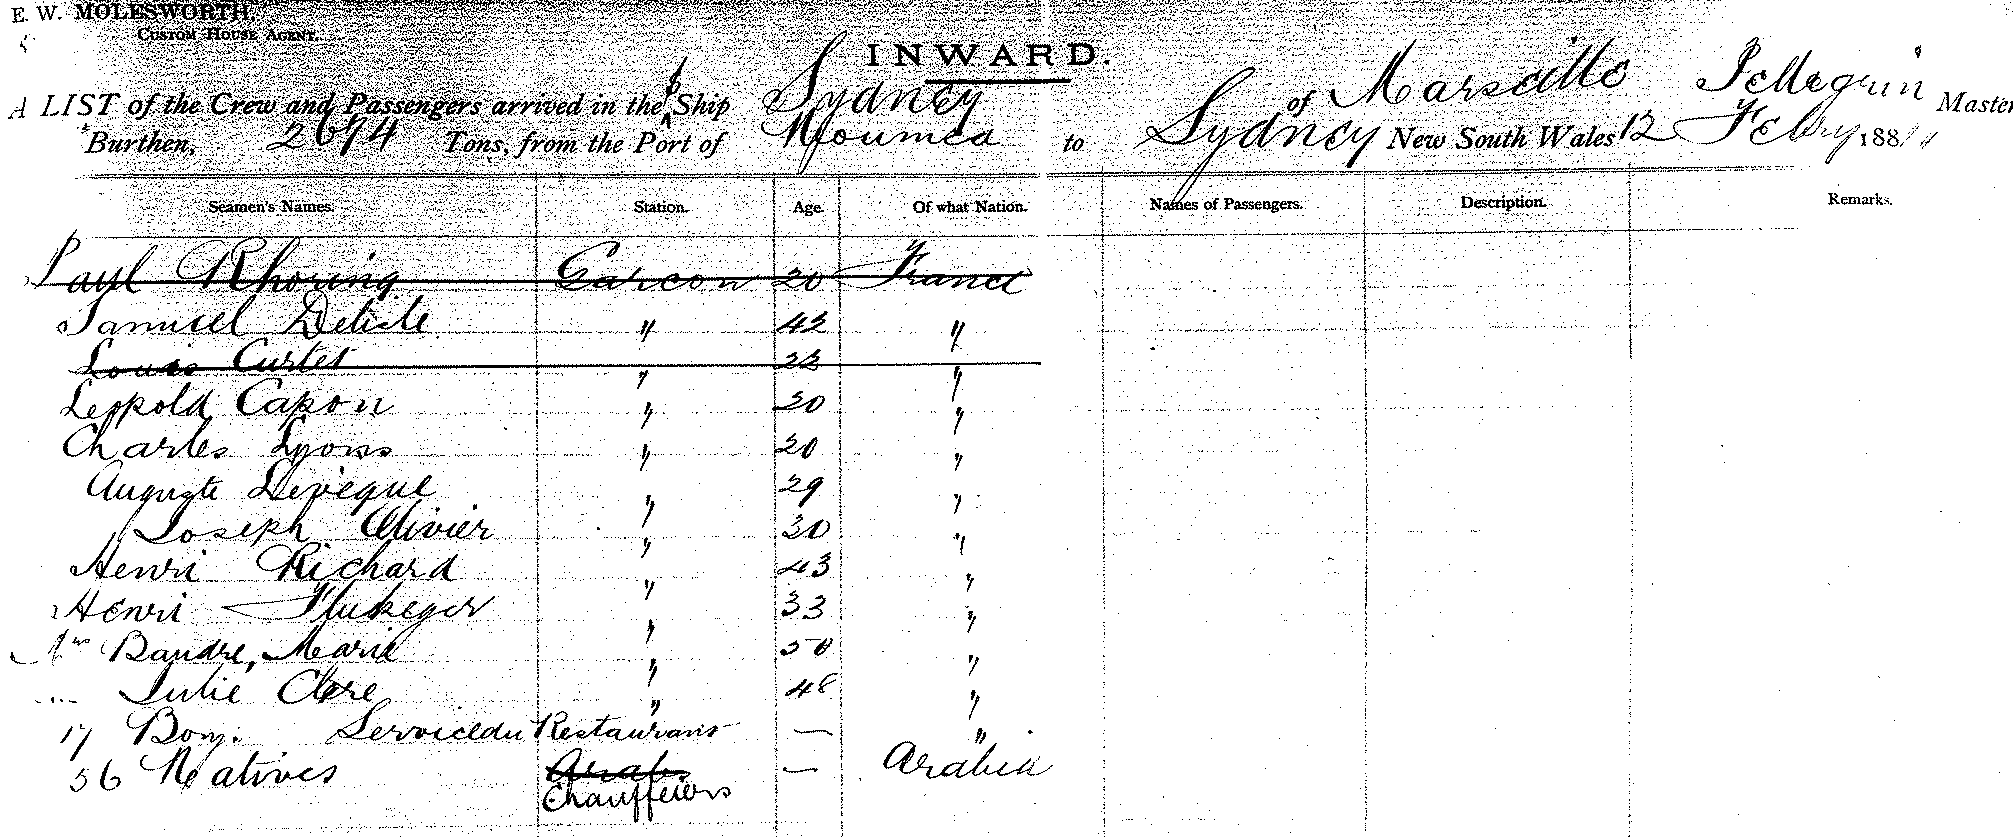 E. W. MOLESWORTH.
CUSTOM HOUSE AGENT.
INWARD.
A LIST of the Crew and Passengers arrived in the S Ship Sydney of Marseille Pellegrin Master
Burthen, 2674 Tons, from the Port of Noumea to Sydney New South Wales 12 Feby 188
Seamen's Names. Station. Age. Of what Nation. Names of Passengers. Description. Remarks.
Paul Rhoring Garcon 20 France
Samuel Delisle " 42 "
Louis Curtet " 22 "
Leopold Capon " 20 "
Charles Lyons " 20 "
Auguste Leveque " 29 "
Joseph Olivier " 30 "
Henri Richard " 43 "
Henri Flukeger " 33 "
Baudre, Marie " 50 "
Julie Clere " 48 "
17 Boys. Service du Restaurant — "
56 Natives Arabs — Arabia
Chauffeurs